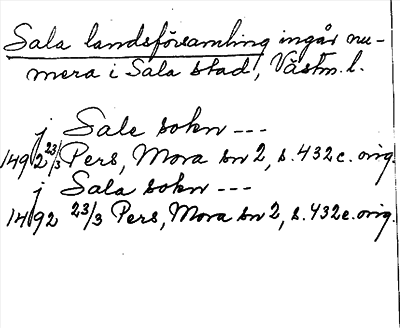 Sala landsförsamling ingår nu-
mera i Sala stad, Västm. l.
j Sale sokn ---
1492 23/3 Pers, Mora sn 2, s. 432 c. orig.
j Sala sokn ---
1492 23/3 Pers, Mora sn 2, s. 432 e. orig.